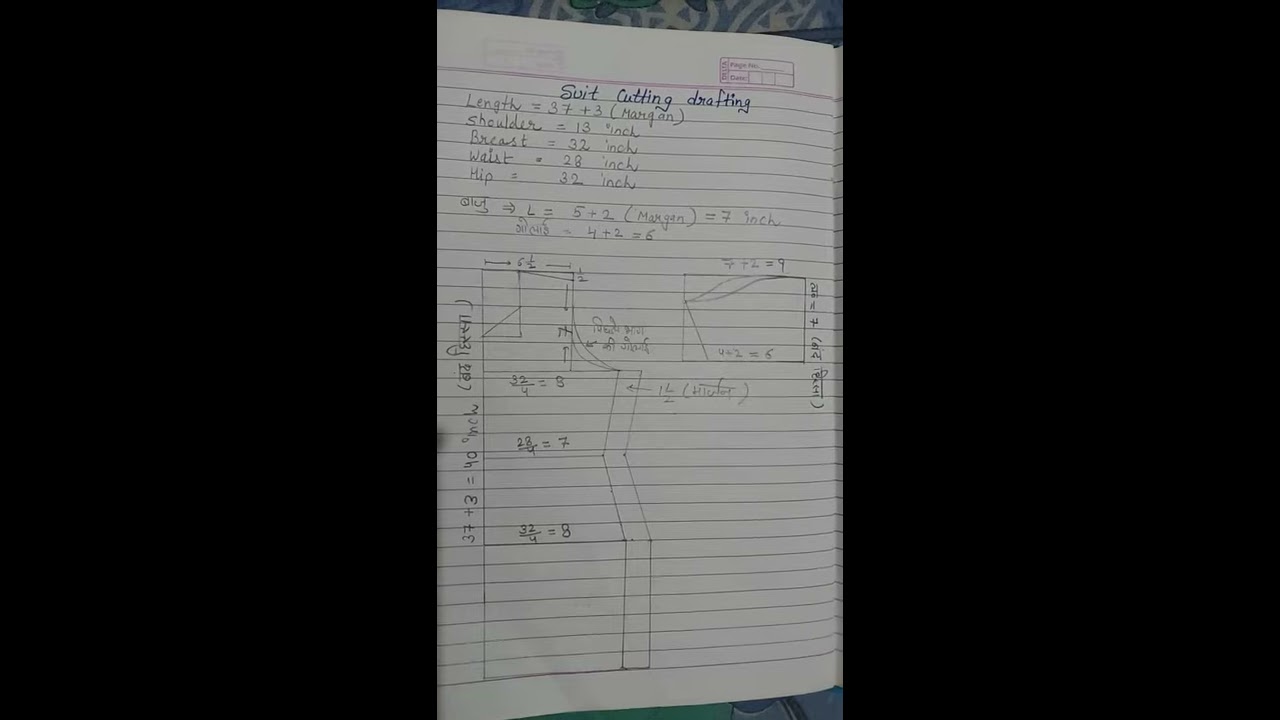 Page No.
Date:
Suit Cutting drafting
Length = 37 + 3 (Margan)
Shoulder = 13 inch
Breast = 32 inch
Waist = 28 inch
Hip = 32 inch
बाजु ⇒ L = 5 + 2 (Margan) = 7 inch
गोलाई = 4 + 2 = 6
6 1/2
1/2
7
पिछले भाग
की गोलाई
32/4 = 8
1 1/2 (मार्जन)
28/4 = 7
32/4 = 8
37 + 3 = 40 inch (बंद हिस्सा)
7 + 2 = 9
4+2 = 6
= 7 (बंद हिस्सा)